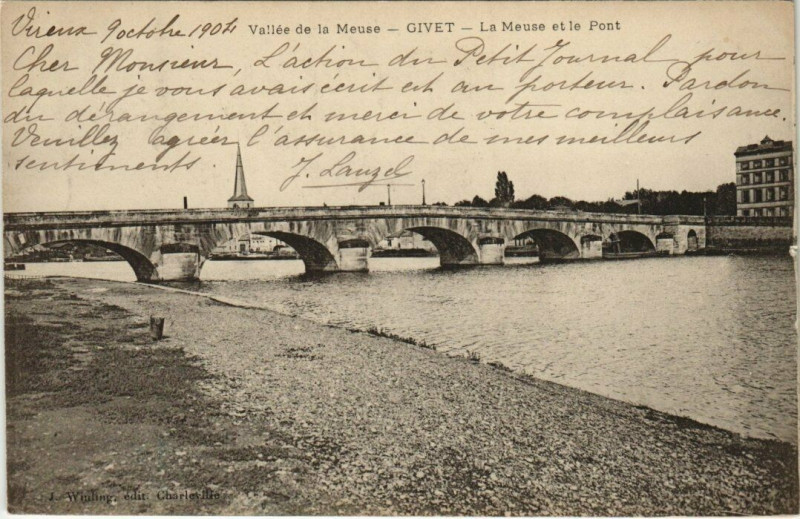 Vireux 9 octobre 1904 Vallée de la Meuse — GIVET — La Meuse et le Pont
Cher Monsieur, L'action du Petit Journal pour
laquelle je vous avais écrit est au porteur. Pardon
du dérangement et merci de votre complaisance.
Veuillez agréer l'assurance de mes meilleurs
sentiments. J. Lauzel
J. Winling, édit. Charleville